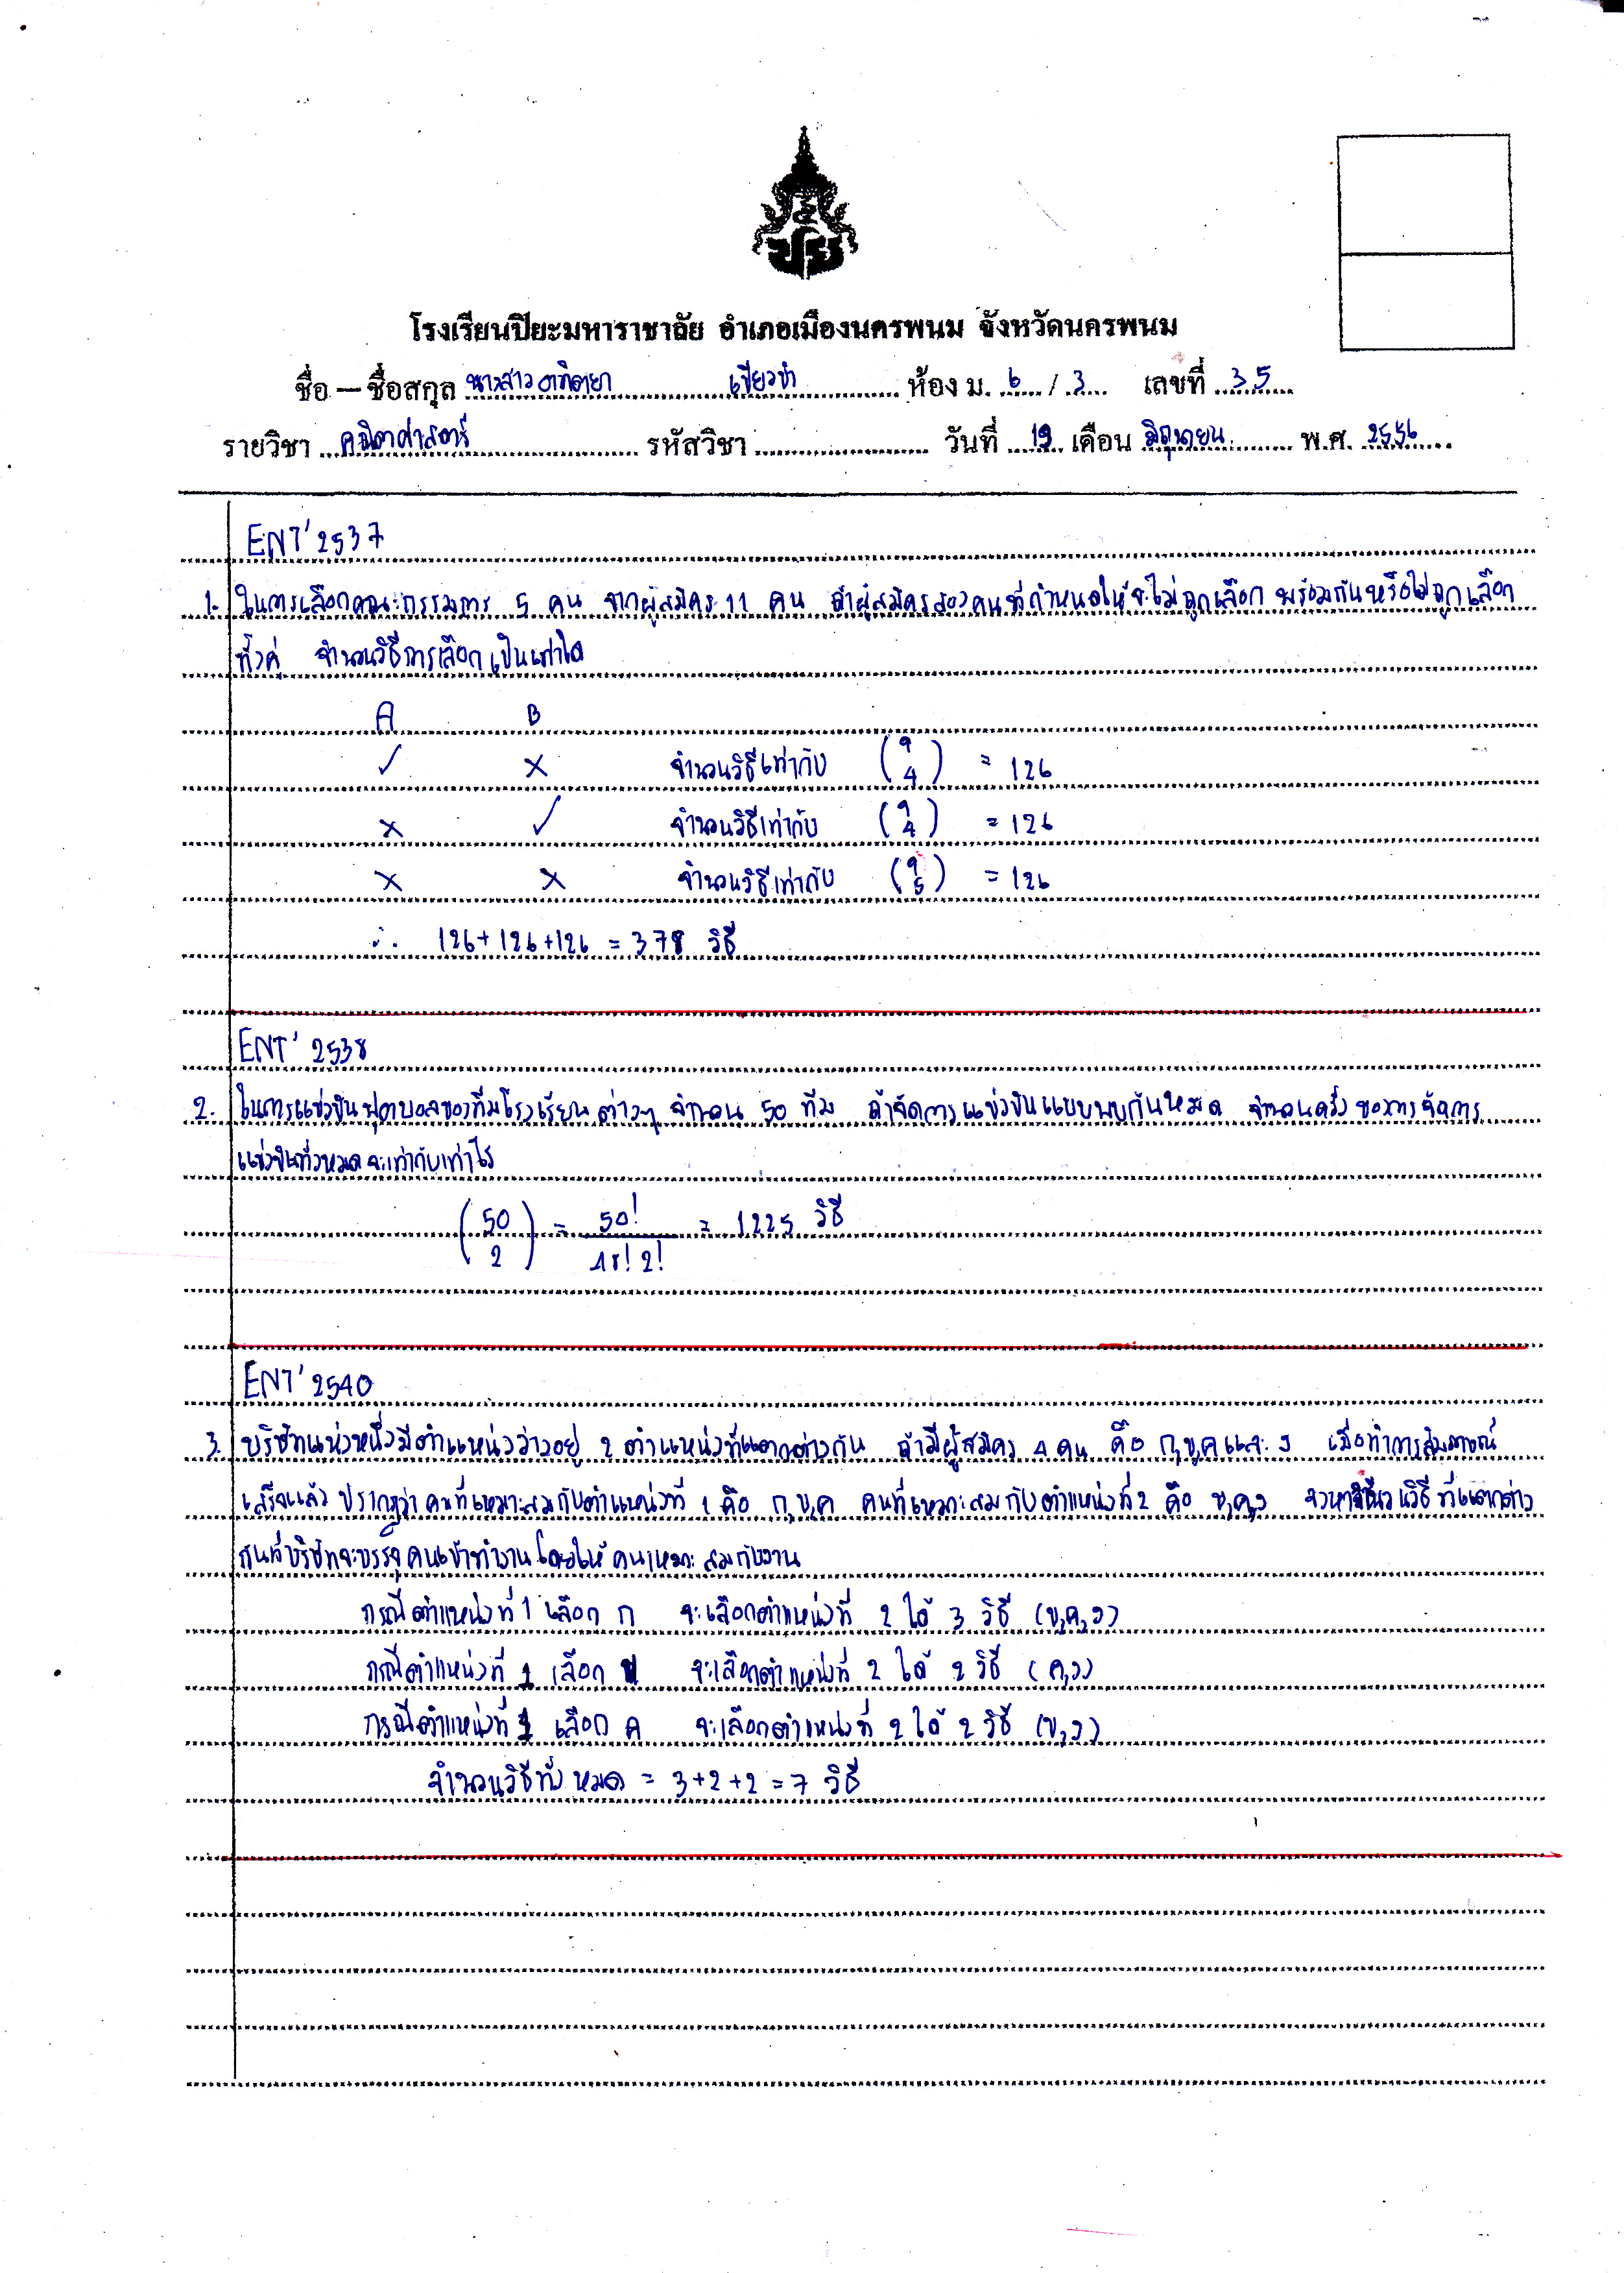 โรงเรียนปิยะมหาราชาลัย อำเภอเมืองนครพนม จังหวัดนครพนม
ชื่อ – ชื่อสกุล นางสาวอาทิตยา เขียวขำ ห้อง ม. 6 / 3 เลขที่ 35
รายวิชา คณิตศาสตร์ รหัสวิชา วันที่ 19 เดือน มิถุนายน พ.ศ. 2556
ENT' 2537
1. ในการเลือกคณะกรรมการ 5 คน จากผู้สมัคร 11 คน ถ้าผู้สมัครสองคนที่กำหนดให้จะไม่ถูกเลือก พร้อมกันหรือไม่ถูกเลือก
ทั้งคู่ จำนวนวิธีการเลือกเป็นเท่าใด
A B
✓ × จำนวนวิธีเท่ากับ (9 4) = 126
× ✓ จำนวนวิธีเท่ากับ (9 4) = 126
× × จำนวนวิธีเท่ากับ (9 5) = 126
∴ 126+126+126 = 378 วิธี
ENT' 2538
2. ในการแข่งขันฟุตบอลของทีมโรงเรียนต่างๆ จำนวน 50 ทีม ถ้าจัดการแข่งขันแบบพบกันหมด จำนวนครั้งของการจัดการ
แข่งขันทั้งหมดจะเท่ากับเท่าไร
(50 2) = 50! / 48! 2! = 1225 วิธี
ENT' 2540
3. บริษัทแห่งหนึ่งมีตำแหน่งว่างอยู่ 2 ตำแหน่งที่แตกต่างกัน ถ้ามีผู้สมัคร 4 คน คือ ก,ข,ค และ ง เมื่อทำการสัมภาษณ์
เสร็จแล้ว ปรากฏว่า คนที่เหมาะสมกับตำแหน่งที่ 1 คือ ก,ข,ค คนที่เหมาะสมกับตำแหน่งที่ 2 คือ ข,ค,ง จงหาจำนวนวิธีที่แตกต่าง
กันที่บริษัทจะบรรจุคนเข้าทำงานโดยให้คนเหมาะสมกับงาน
กรณีตำแหน่งที่ 1 เลือก ก จะเลือกตำแหน่งที่ 2 ได้ 3 วิธี (ข,ค,ง)
กรณีตำแหน่งที่ 1 เลือก ข จะเลือกตำแหน่งที่ 2 ได้ 2 วิธี (ค,ง)
กรณีตำแหน่งที่ 1 เลือก ค จะเลือกตำแหน่งที่ 2 ได้ 2 วิธี (ข,ง)
จำนวนวิธีทั้งหมด = 3+2+2 = 7 วิธี